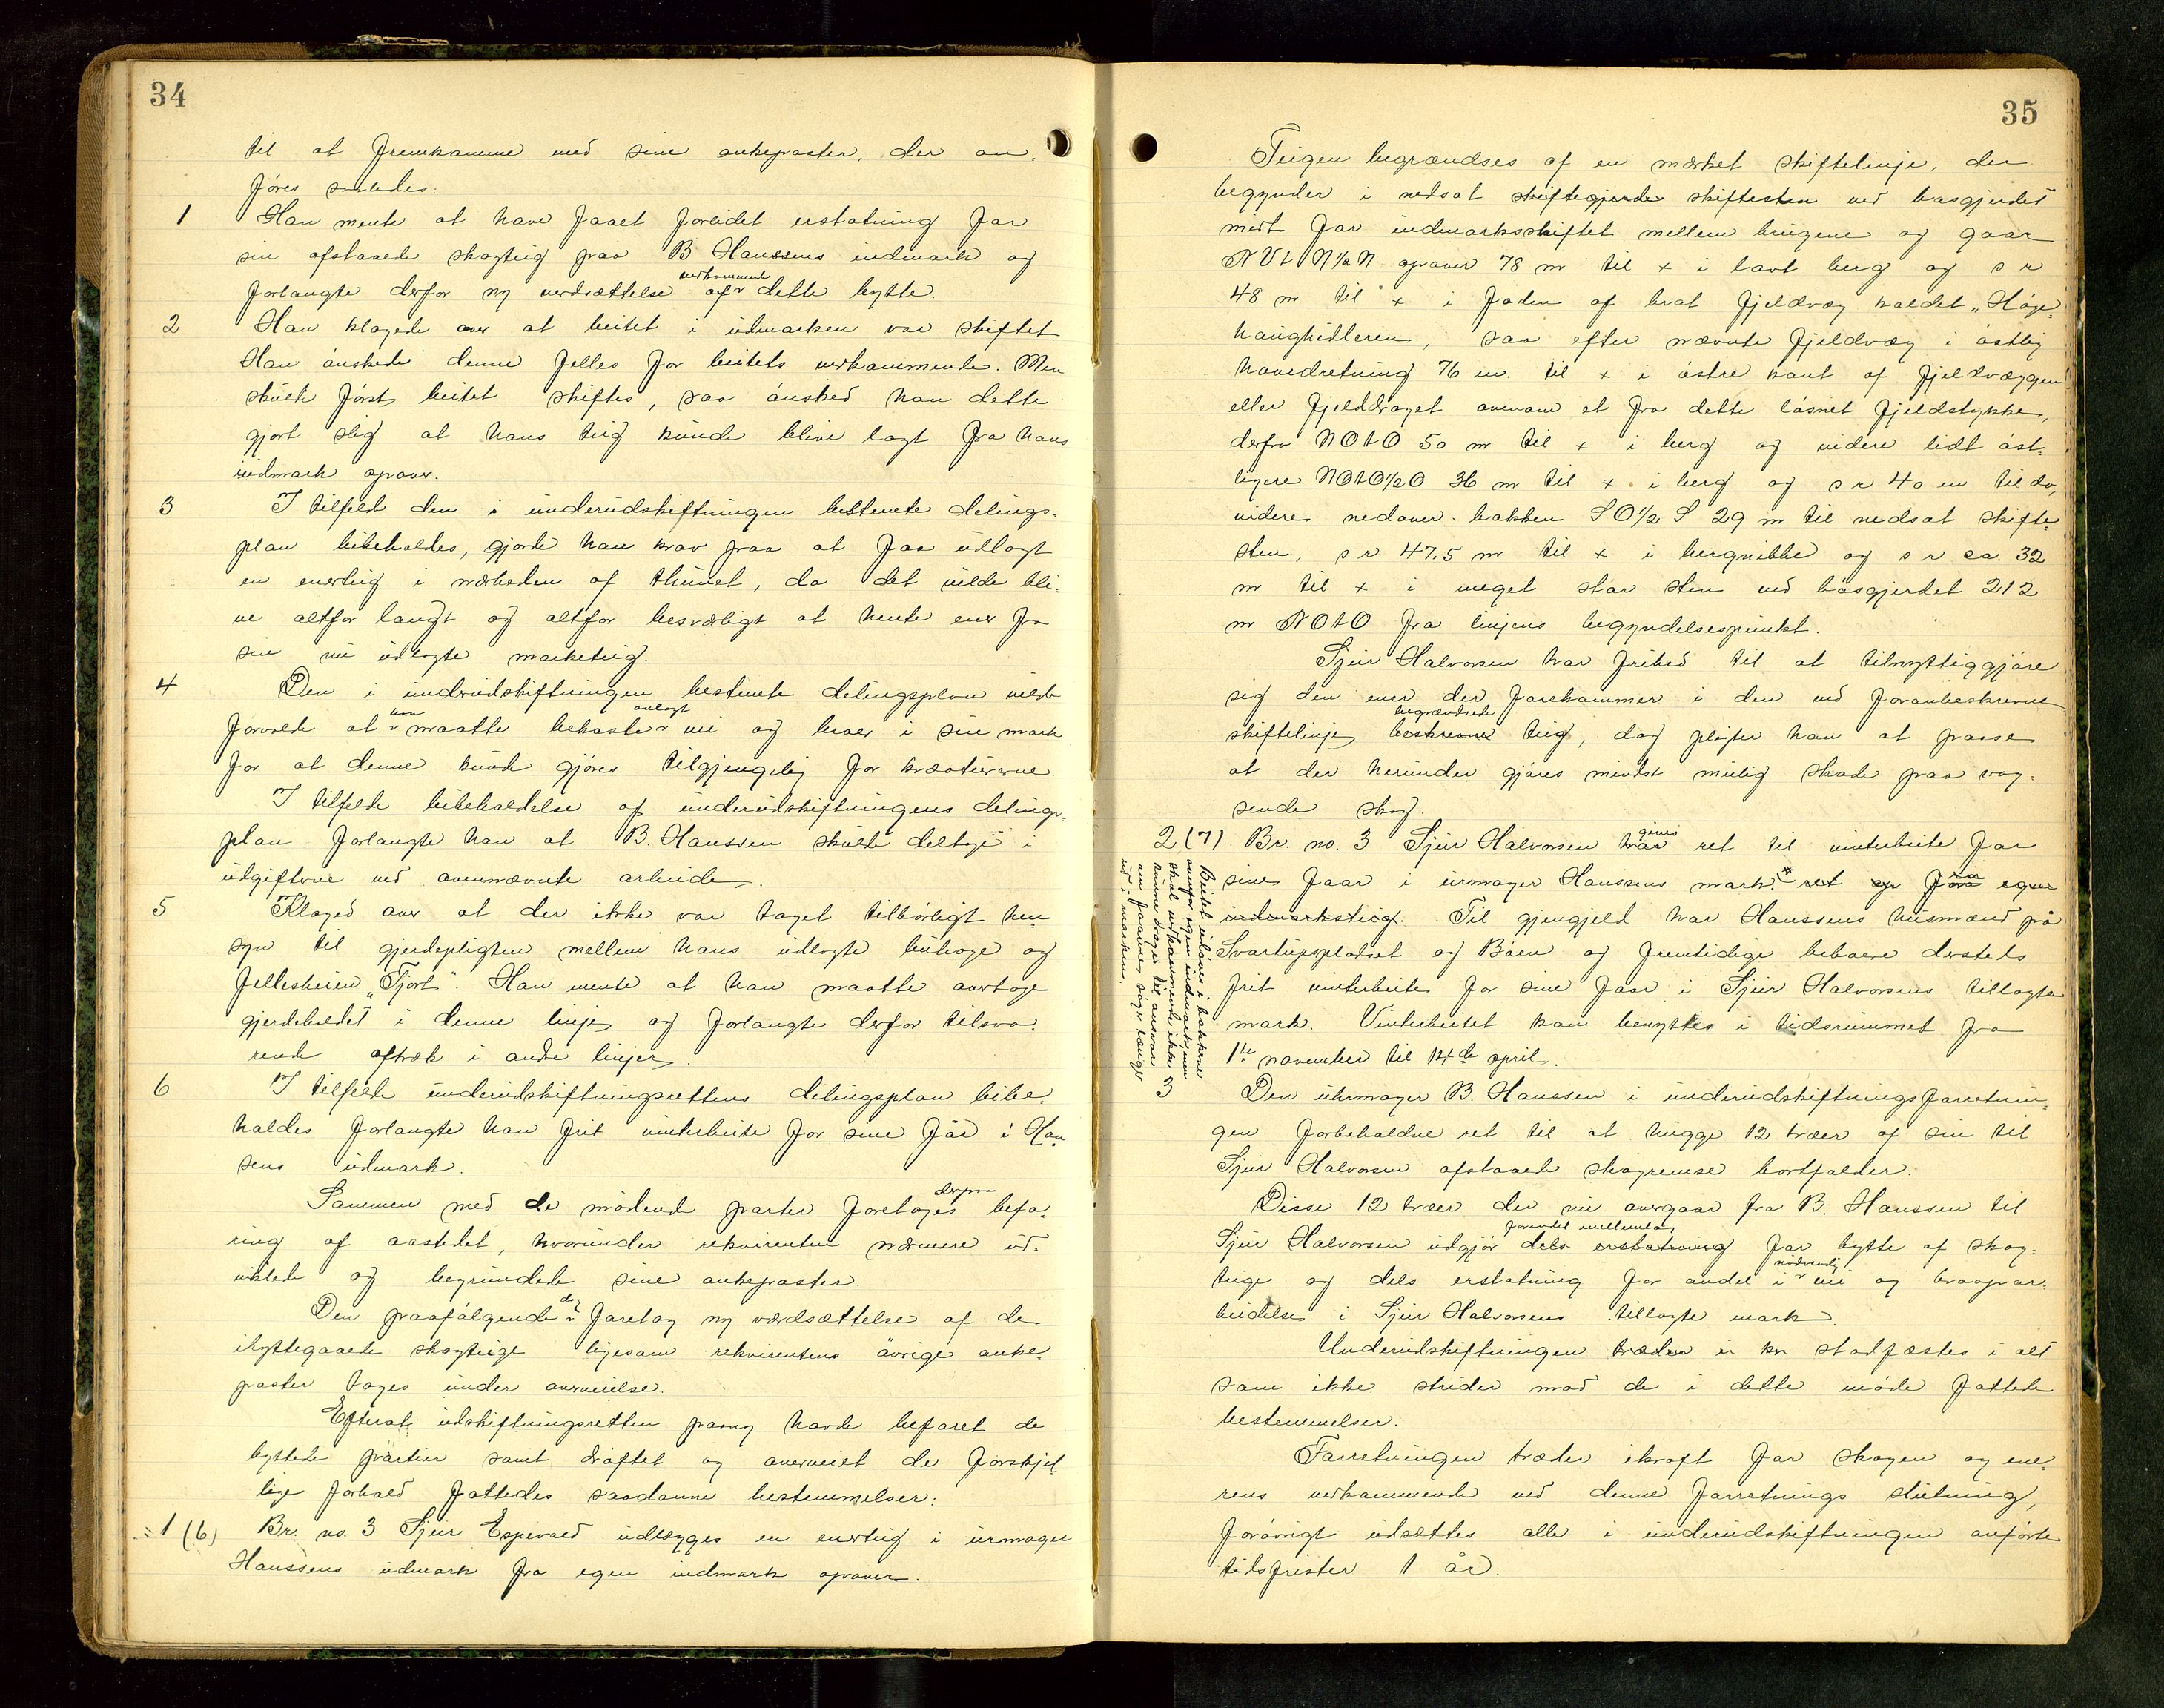 34
til at fremkomme med sine ankeposter, der an-
föres saaledes:
1 Han mente at have faaet forlidet erstatning for
sin afstaaede skogteig paa B Hanssens indmark og
forlangte derfor ny verdsættelse af vedkommende dette bytte.
2 Han klagede over at beitet i udmarken var skiftet.
Han önskede denne felles for beitets vedkommende. Men
skulde först beitet skiftes, saa önsked han dette
gjort slig at hans teig kunde blive lagt fra hans
indmark opover.
3 I tilfeld den i underudskiftningen bestemte delings-
plan bibeholdes, gjorde han krav paa at faa udlagt
en enerteig i nærheden af thunet, da det vilde bli-
ve altfor langt og altfor besværligt at hente ener fra
sin nu udlagte marketeig.
4 Den i underudskiftningen bestemte delingsplan vilde
forvolde at han maatte bekoste anlagt vei og broer i sin mark
for at denne kunde gjöres tilgjengelig for kreaturerne.
I tilfelde bibeholdelse af underudskiftningens delings-
plan forlangte han at B. Hanssen skulde deltage i
udgifterne ved ovennævnte arbeide.
5 Klaged over at der ikke var taget tilbörligt hen-
syn til gjerdepligten mellem hans udlagte buhage og
felleseien "Tjort". Han mente at han maatte overtage
gjerdeholdet i denne linje og forlangte derfor tilsva-
rende aftræk i andre linjer.
6 I tilfelde underudskiftningsrettens delingsplan bibe-
holdes forlangte han frit vinterbeite for sine får i Han-
sens udmark.
Sammen med de mödende parter foretoges derpaa befa-
ring af aastedet, hvorunder rekvirenten nærmere ud-
viklede og begrundede sine ankeposter.
Den paafölgende dag foretog ny værdsættelse af de
ibyttegaaede skogteige ligesom rekvirentens övrige anke-
poster toges under overveielse.
Efterat udskiftningsretten paany havde befaret de
byttede partier samt dröftet og overveiet de forskjel-
lige forhold fattedes saadanne bestemmelser:
1 (6) Br. no. 3 Sjur Espevold udlægges en enerteig i urmager
Hanssens udmark fra egen indmark opover.
35
Teigen begrændses af en mærket skiftelinje, der
begynder i nedsat skiftegjerde skiftesten ved bøsgjerdet
midt for indmarksskiftet mellem brugene og gaar
NVtN½N opover 78 m til x i lavt berg og s r
48 m til x i foden af brat fjeldvæg kaldet "Höge-
haughidleren, saa efter nævnte fjeldvæg i östlig
hovedretning 76 m. til x i östre kant af fjeldvæggen
eller fjelddraget ovenom et fra dette lösnet fjeldstykke,
derfra NOtO 50 m til x i berg og videre lidt öst-
ligere NOtO½O 36 m til x i berg og s r 40 m til do,
videre nedover bakken SO½S 29 m til nedsat skifte-
sten, s r 47.5 m til x i bergnibbe og s r ca. 32
m til x i meget stor sten ved bösgjerdet 212
m NOtO fra linjens begyndelsespunkt.
Sjur Halvorsen har frihed til at tilnyttiggjöre
sig den ener der forekommer i den ved foranbeskrevne
skiftelinje beskrevne begrændsede teig, dog pligter han at passe
at der herunder gjöres mindst mulig skade paa vog-
sende skog.
2 (7) Br. no. 3 Sjur Halvorsen har gives ret til vinterbeite for
sine faar i urmager Hanssens mark. ret op fra egen
indmarksteig. Til gjengjeld har Hanssens husmænd på
Svartupspladset og Böen og fremtidige beboere dersteds
frit vinterbeite for sine faar i Sjur Halvorsens tillagte
mark. Vinterbeitet kan benyttes i tidsrummet fra
1ste november til 14de april.
Beitet udöves i bakkene
ovenfor egen indmark men
skal vedkommende ikke
kunne drages til ansvar
om faarene siger længer
ud i marken.
3 Den uhrmager B. Hanssen i underudskiftningsforretnin-
gen forbeholdne ret til at hugge 12 træer af sin til
Sjur Halvorsen afstaaede skogremse bortfalder.
Disse 12 træer der nu overgaar fra B. Hanssen til
Sjur Halvorsen udgjör dels erstatning forendel mellemlag for bytte af skog-
teige og dels erstatning for andel i nödvendig vei og broopar-
beidelse i Sjur Halvorsens tillagte mark.
Underudskiftningen træder i kr stadfæstes i alt
som ikke strider mod de i dette möde fattede
bestemmelser.
Forretningen træder ikraft for skogen og ene-
rens vedkommende ved denne forretnings slutning,
forövrigt udsættes alle i underudskiftningen anförte
tidsfrister 1 år.